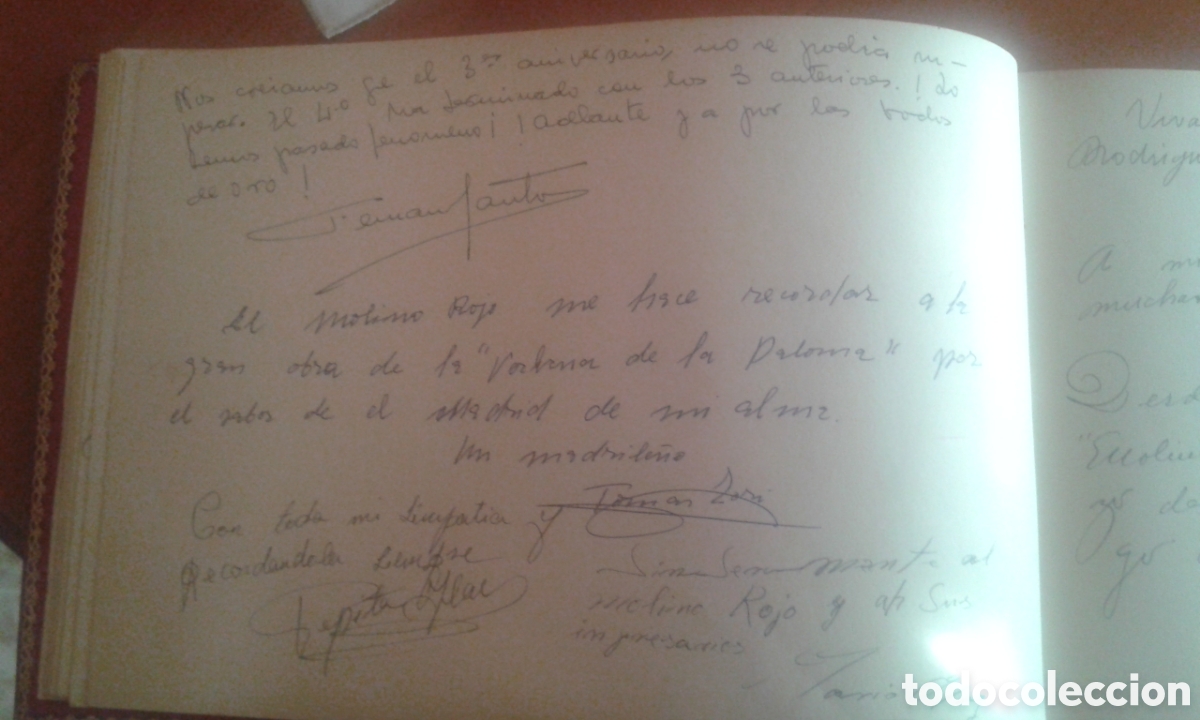 Nos creiamos qe el 3er aniversario, no se podia su-
perar. El 4º ha terminado con los 3 anteriores. ! Lo
hemos pasado fenomeno ¡ ! Adelante y a por las todos
de oro !
Fernan Santos
El Molino Rojo me hace recordar a la
gran obra de la "Verbena de la Paloma" por
el sabor de el Madrid de mi alma.
Un madrileño
Tomas Zori
Con toda mi simpatia y
Recordandola siempre
Pepita
Sinseramente al
molino Rojo y a Sus
impresarios
Viva
Rodrigu
A
muchas
Desd
"El Molin
go
todocoleccion